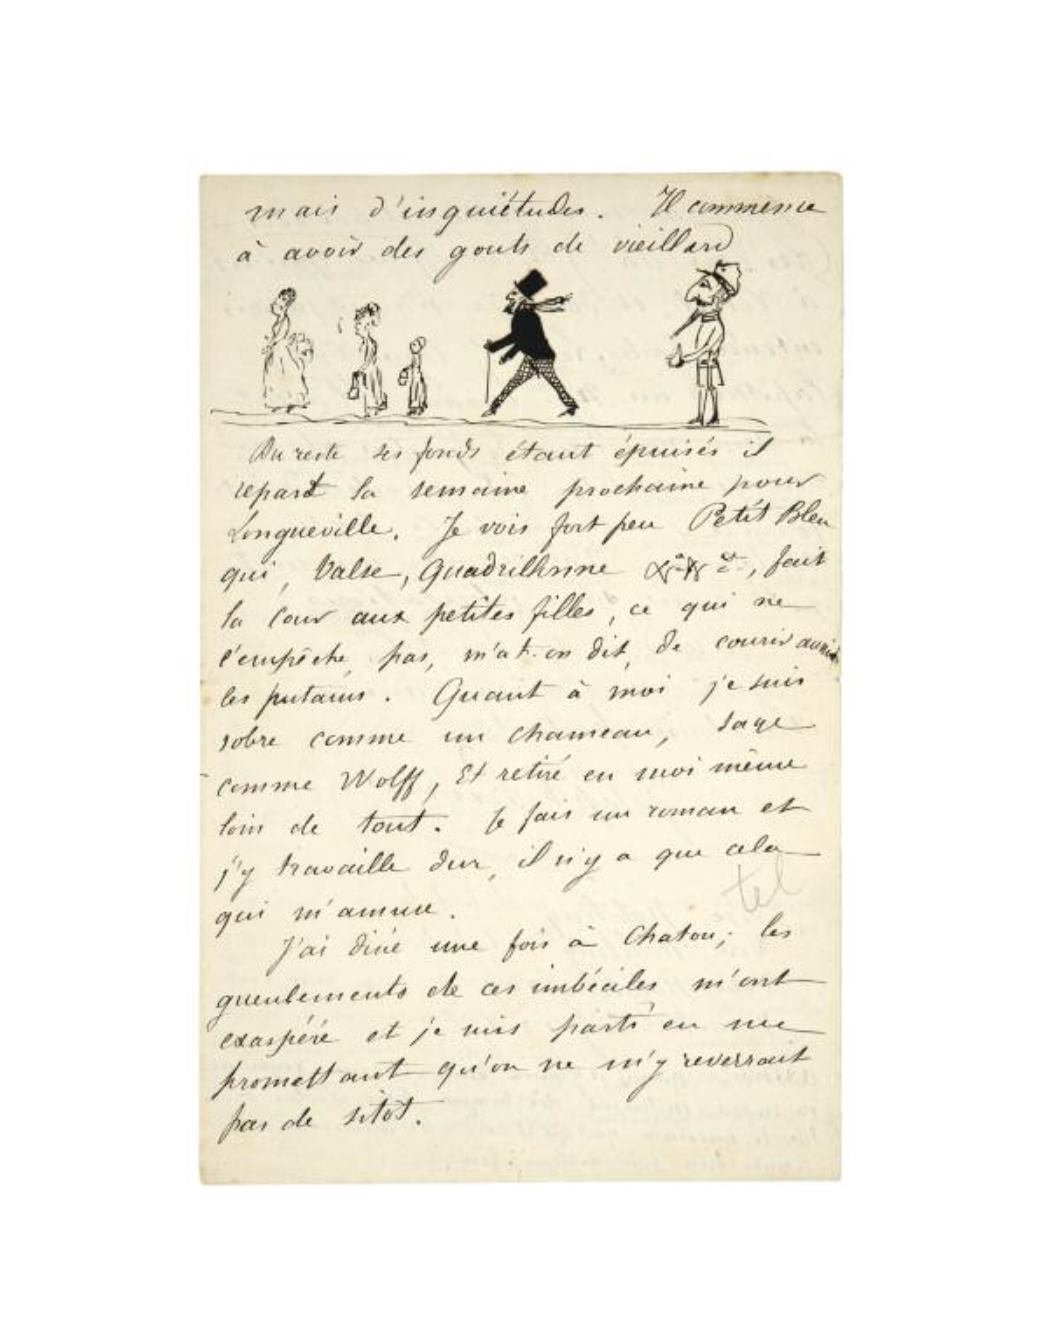 mais d'inquiétudes. Il commence
à avoir des gouts de vieillard
Du reste ses fonds étant épuisés il
repart la semaine prochaine pour
Longueville. Je vois fort peu Petit Bleu
qui, Valse, Quadrillonne, fait
la cour aux petites filles, ce qui ne
l'empêche, pas, m'a-t-on dit, de courir aussi
les putains. Quant à moi je suis
sobre comme un chameau, sage
comme Wolff, Et retiré en moi même
loin de tout. Je fais un roman et
j'y travaille dur, il n'y a que cela
qui m'amuse.
tel
J'ai diné une fois à Chatou; les
gueulements de ces imbéciles m'ont
exaspéré et je suis parti en me
promettant qu'on ne m'y reverrait
pas de sitôt.